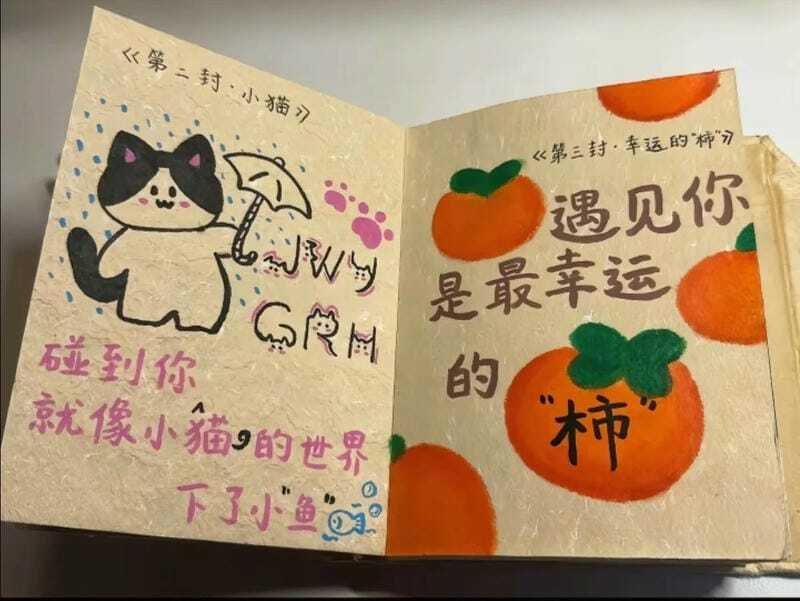 《第二封·小猫》
JWY
GRH
碰到你
就像小猫的世界
下了小"鱼"
《第三封·幸运的"柿"》
遇见你
是最幸运
的
"柿"